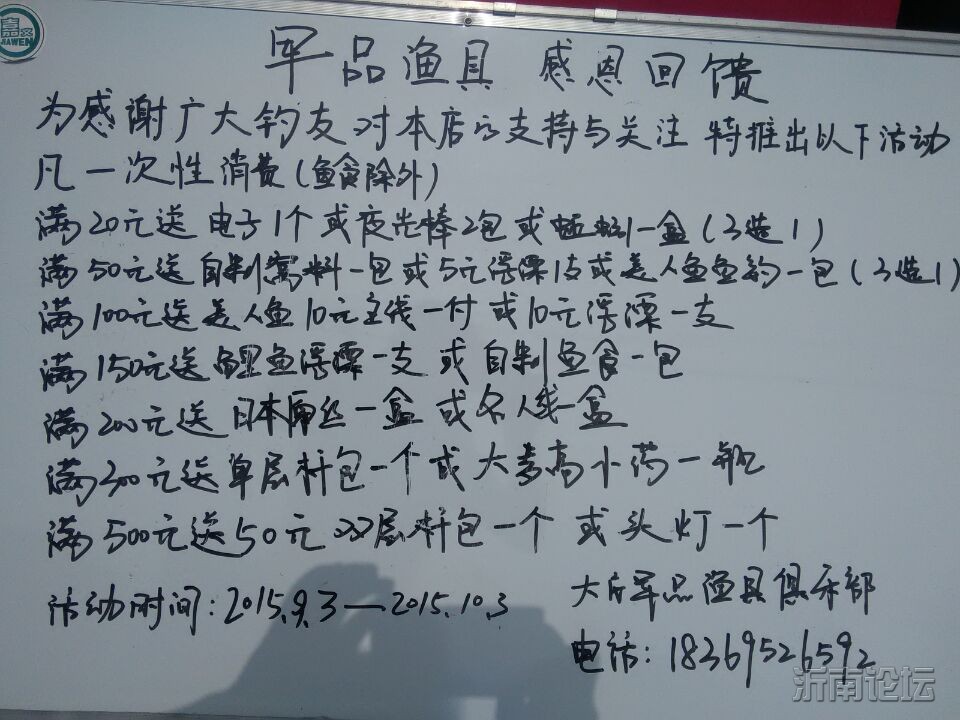 嘉文
JIAWEN
军品渔具 感恩回馈
为感谢广大钓友对本店的支持与关注 特推出以下活动
凡一次性消费(鱼食除外)
满20元送 电子1个或夜光棒2包或蚯蚓一盒(3选1)
满50元送自制窝料一包或5元浮漂1支或美人鱼鱼钩一包(3选1)
满100元送美人鱼10元主线一付或10元浮漂一支
满150元送鲤鱼浮漂一支 或自制鱼食一包
满200元送日本原丝一盒 或名人线一盒
满300元送单层杆包一个或大青高小药一瓶
满500元送50元双层杆包一个 或头灯一个
活动时间:2015.9.3—2015.10.3
大庄军品渔具俱乐部
电话:18369526592
沂南论坛